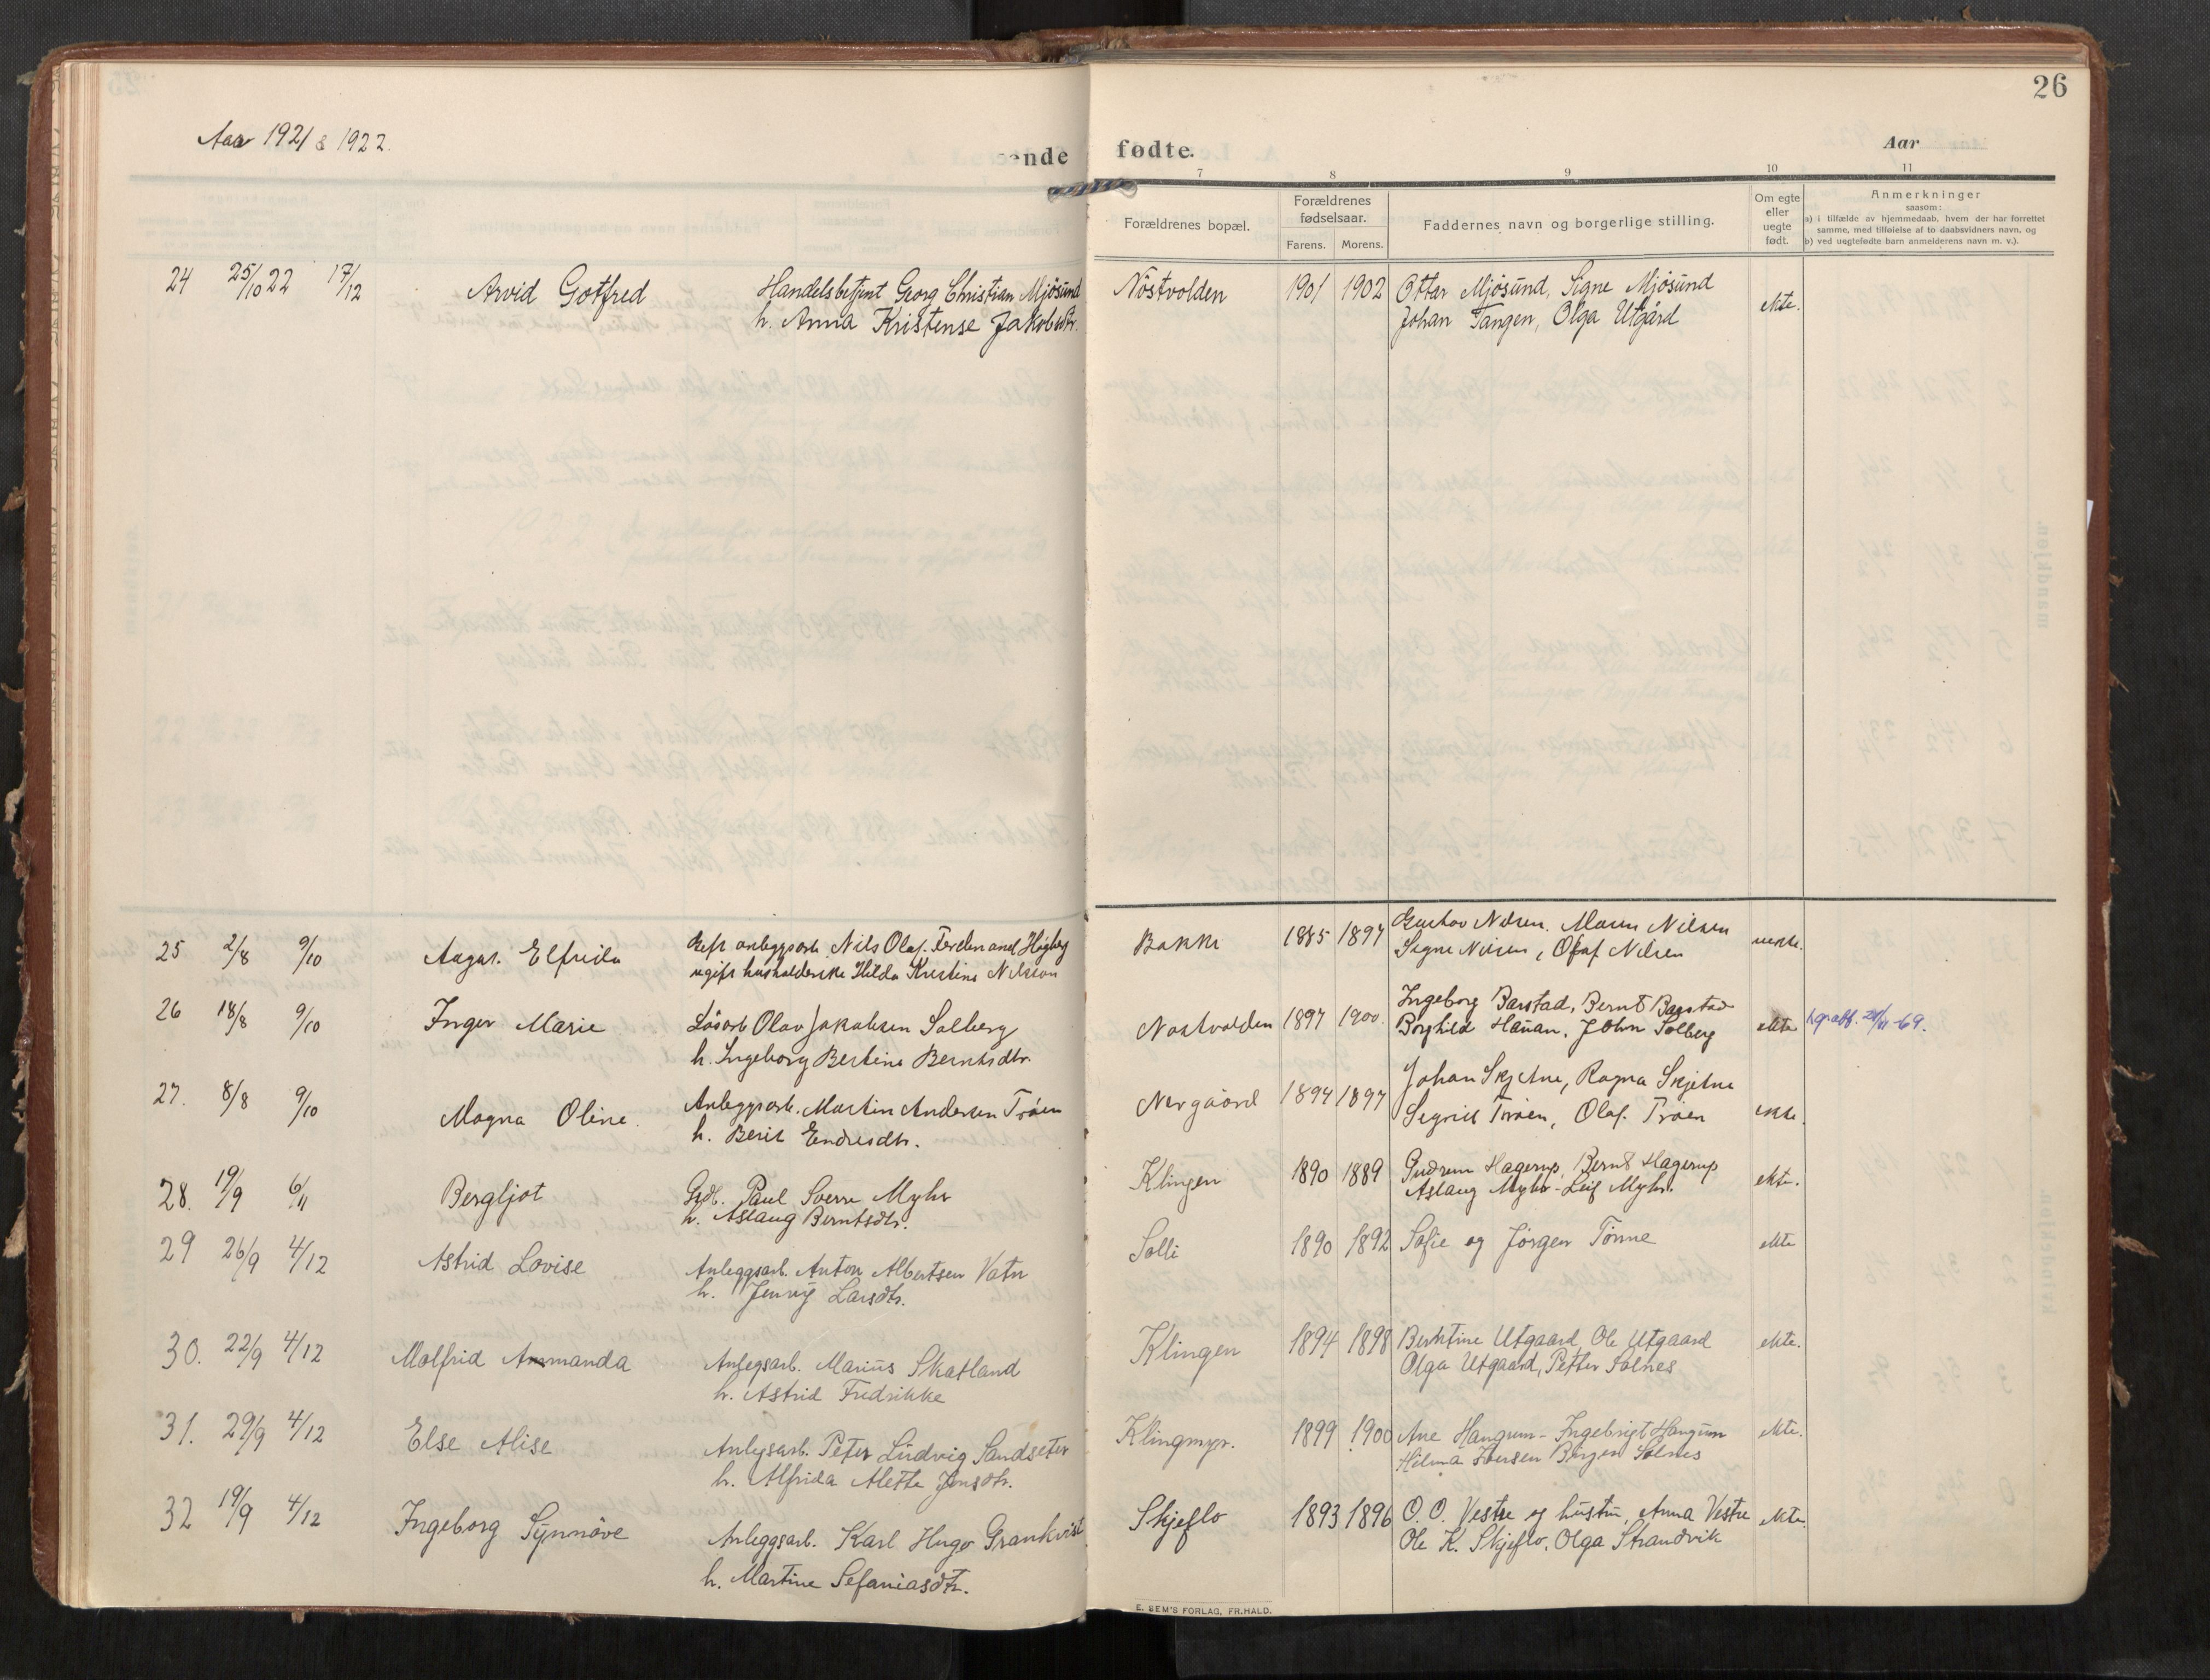 26
Aar 1921 & 1922.
ende fødte.
Aar
7 8 9 10 11
Forældrenes bopæl.
Forældrenes fødselsaar.
Farens. Morens.
Faddernes navn og borgerlige stilling.
Om egte
eller
uegte
født.
Anmerkninger
saasom:
a) i tilfælde av hjemmedaab, hvem der har forrettet
samme, med tilføielse af to daabsvidners navn, og
b) ved uegtefødte barn anmelderens navn m. v.).
24 25/10 22 17/12 Arvid Gotfred Handelsbetjent Georg Christian Mjösund Nöstvolden 1901 1902 Ottar Mjösund, Signe Mjösund ekte.
h. Anna Kristense Jakobsdtr. Johan Tangen, Olga Utgård
25 2/8 9/10 Aagot Elfrida Gift anleggsarb. Nils Olaf Ferdinand Bakke 1885 1897 Gustav Nilsen. Maren Nilsen uekte.
ugift husholderske Hilda Kristine Nilsson Signe Nilsen, Olaf Nilsen
26 18/8 9/10 Inger Marie Lösarb Olav Jakobsen Solberg Nostvolden 1897 1900. Ingeborg Barstad, Bernt Barstad ekte
h. Ingeborg Bertine Berntsdtr. Borghild Hauan, John Solberg
27. 8/8 9/10 Magna Oline. Anleggsarb. Martin Andersen Tröen Nergaard 1894 1897 Johan Skjetne, Ragna Skjetne ekte.
h. Berit Endresdtr. Sigrid Tröen, Olaf Tröen
28. 19/9 6/11 Bergljot Gdb. Paul Sverre Myhr Klingen 1890 1889 Gudrun Hagerup, Bernt Hagerup ekte.
h. Aslaug Berntsdtr. Aslaug Myhr - Leif Myhr.
29 26/9 4/12 Astrid Lovise Anleggsarb. Anton Albertsen Vatn Solli 1890 1892 Sofie og Jörgen Tönne ekte
h. Jenny Larsdtr.
30. 22/9 4/12 Malfrid Ammanda Anlegsarb. Marius Skatland Klingen 1894 1898 Berntine Utgaard, Ole Utgaard ekte.
h. Astrid Fredrikke Olga Utgaard, Petter Solnes
31. 29/9 4/12 Else Alise Anlegsarb. Peter Ludvig Sandseter Klingmyr. 1899 1900 Ane Hangum - Ingebrigt Hangum ekte.
h. Alfrida Alette Jensdtr. Hilma Iversen Birger Solnes
32 19/9 4/12 Ingeborg Synnöve Anleggsarb. Karl Hugo Grankvist Skjeflo 1893 1896 O. O. Vestre og hustru, Anna Vestre ekte.
h. Martine Sefaniasdtr. Ole K. Skjeflo, Olga Strandvik
E. SEM'S FORLAG, FR.HALD.